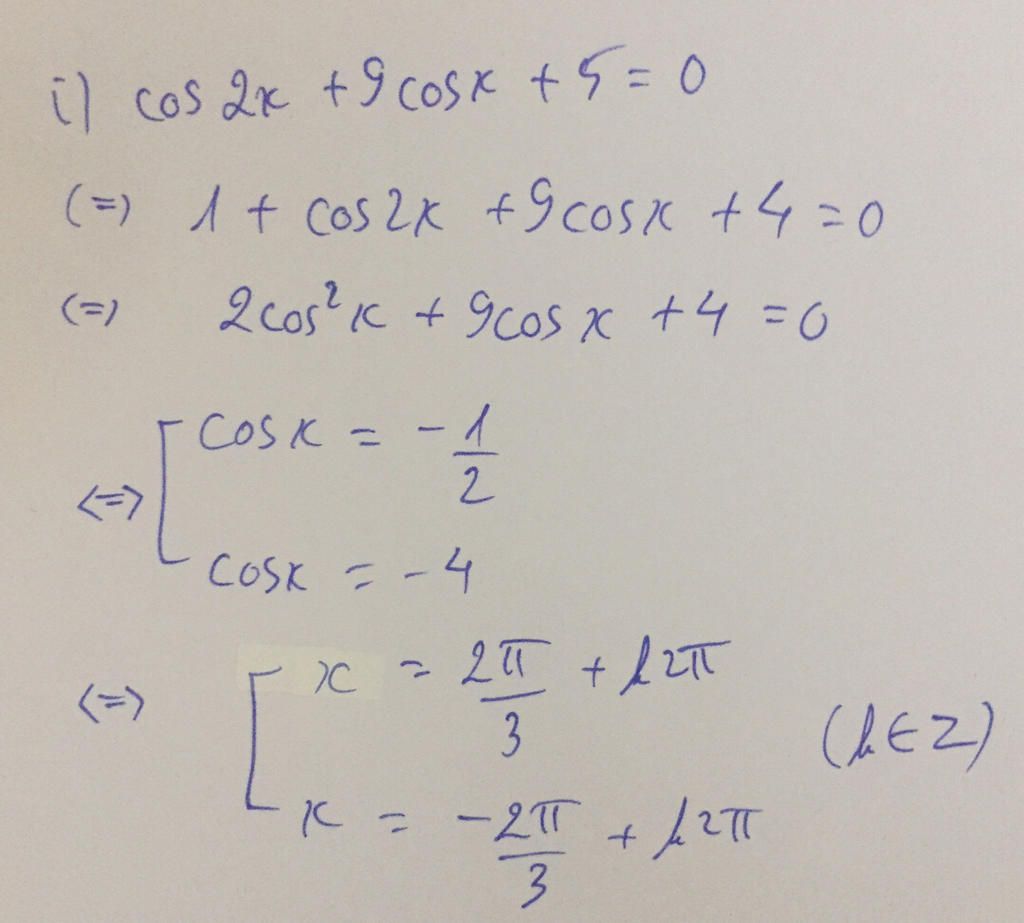 i) cos 2x + 9 cosx + 5 = 0
(=) 1 + cos2x + 9cosx + 4 = 0
(=) 2cos²x + 9cosx + 4 = 0
<=> [ cosx = -1/2
cosx = -4
<=> [ x = 2π/3 + k2π
(k∈Z)
x = -2π/3 + k2π